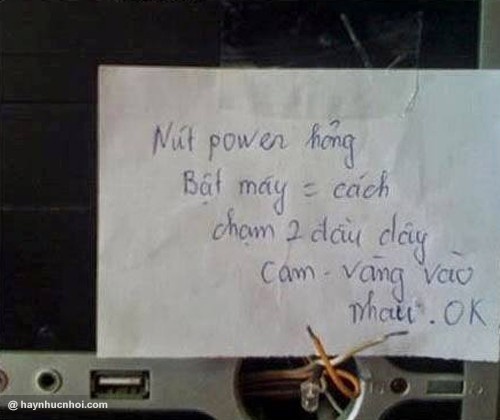 Nút power hỏng
Bật máy = cách
chạm 2 đầu dây
cam - vàng vào
nhau. OK
@ haynhucnhoi.com